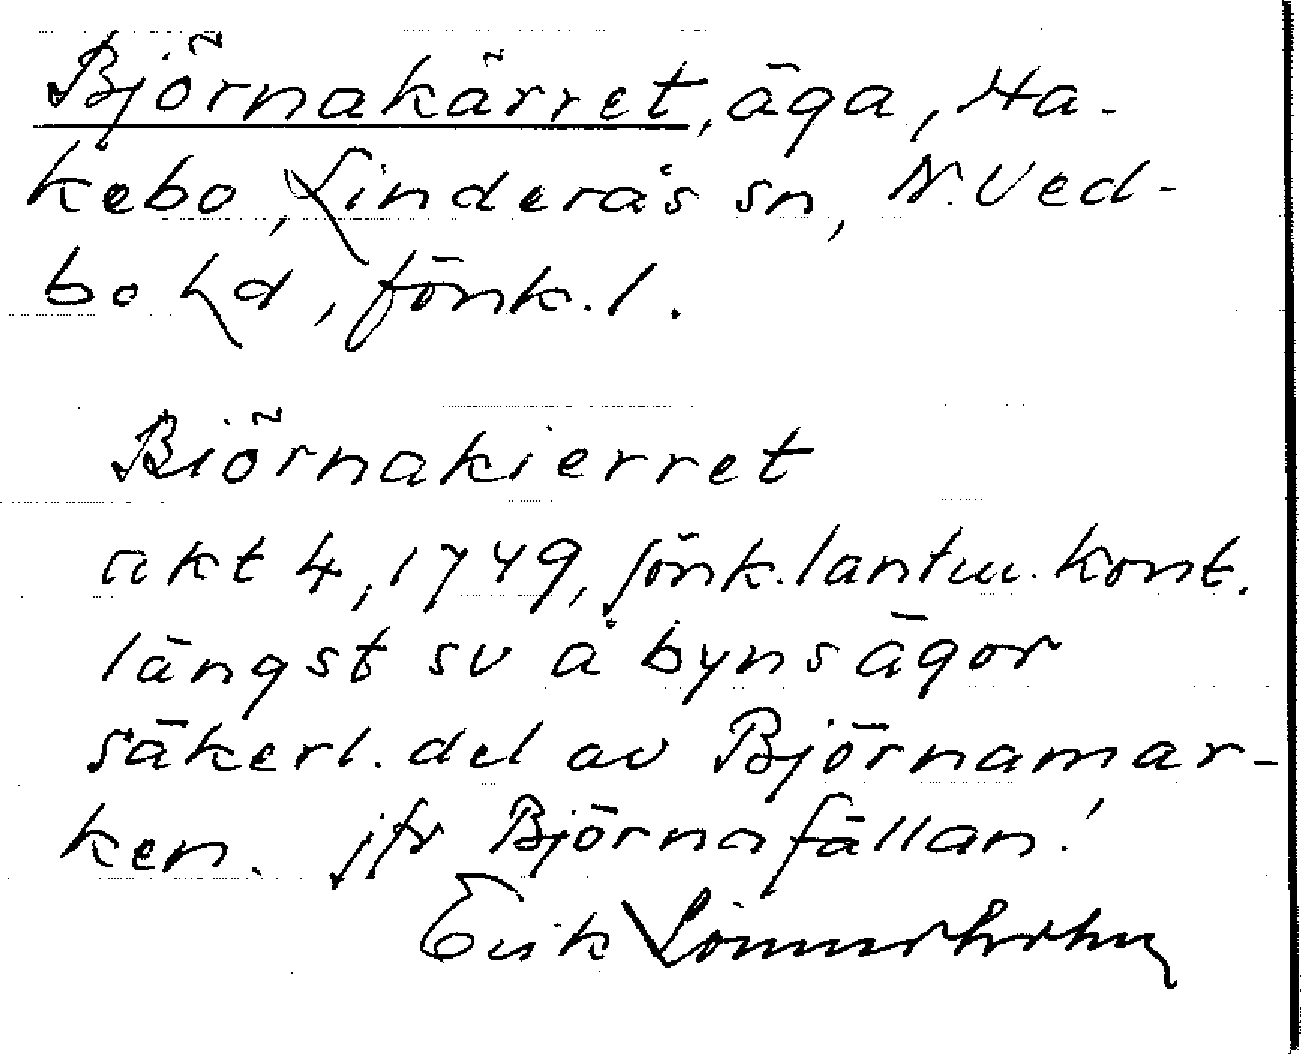 Björnakärret, äga, Ha-
kebo, Linderås sn, N. Ved-
bo hd, Jönk. l.
Biörnakierret
akt 4, 1749, Jönk. lantm. kont.
längst sv å byns ägor
säkerl. del av Björnamar-
ken. jfr Björnafällan!
Erik